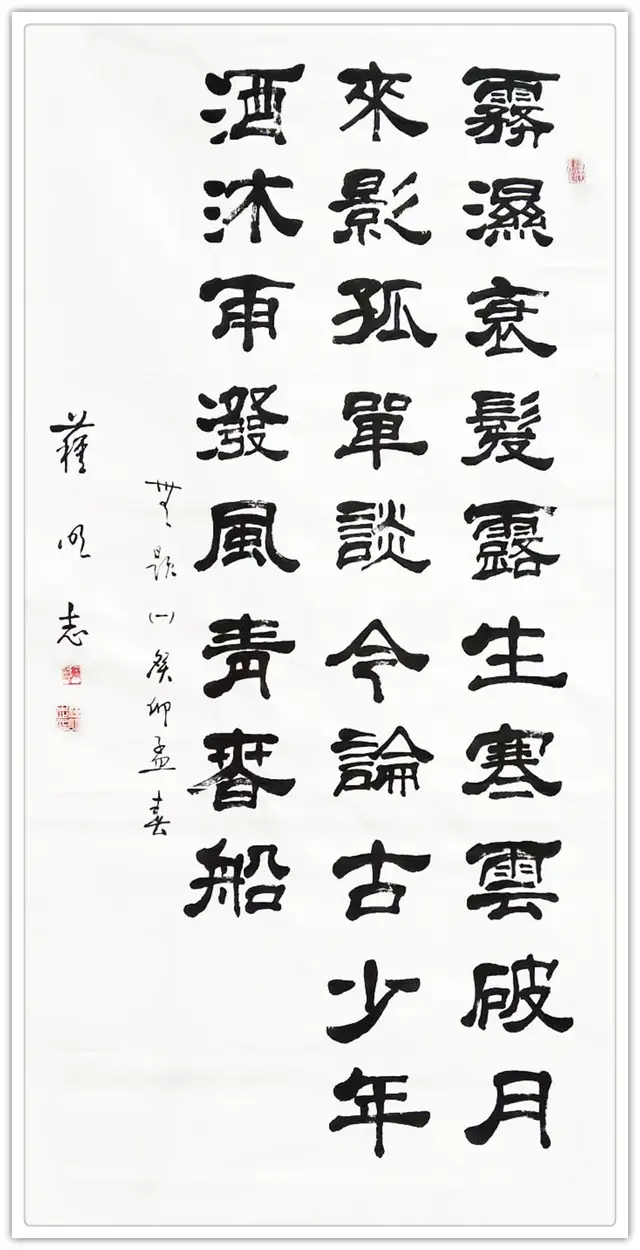 霧濕衰髮露生寒雲破月
來影孤單談今論古少年
酒沐雨潑風青春船
無題(一)癸卯孟春
明志